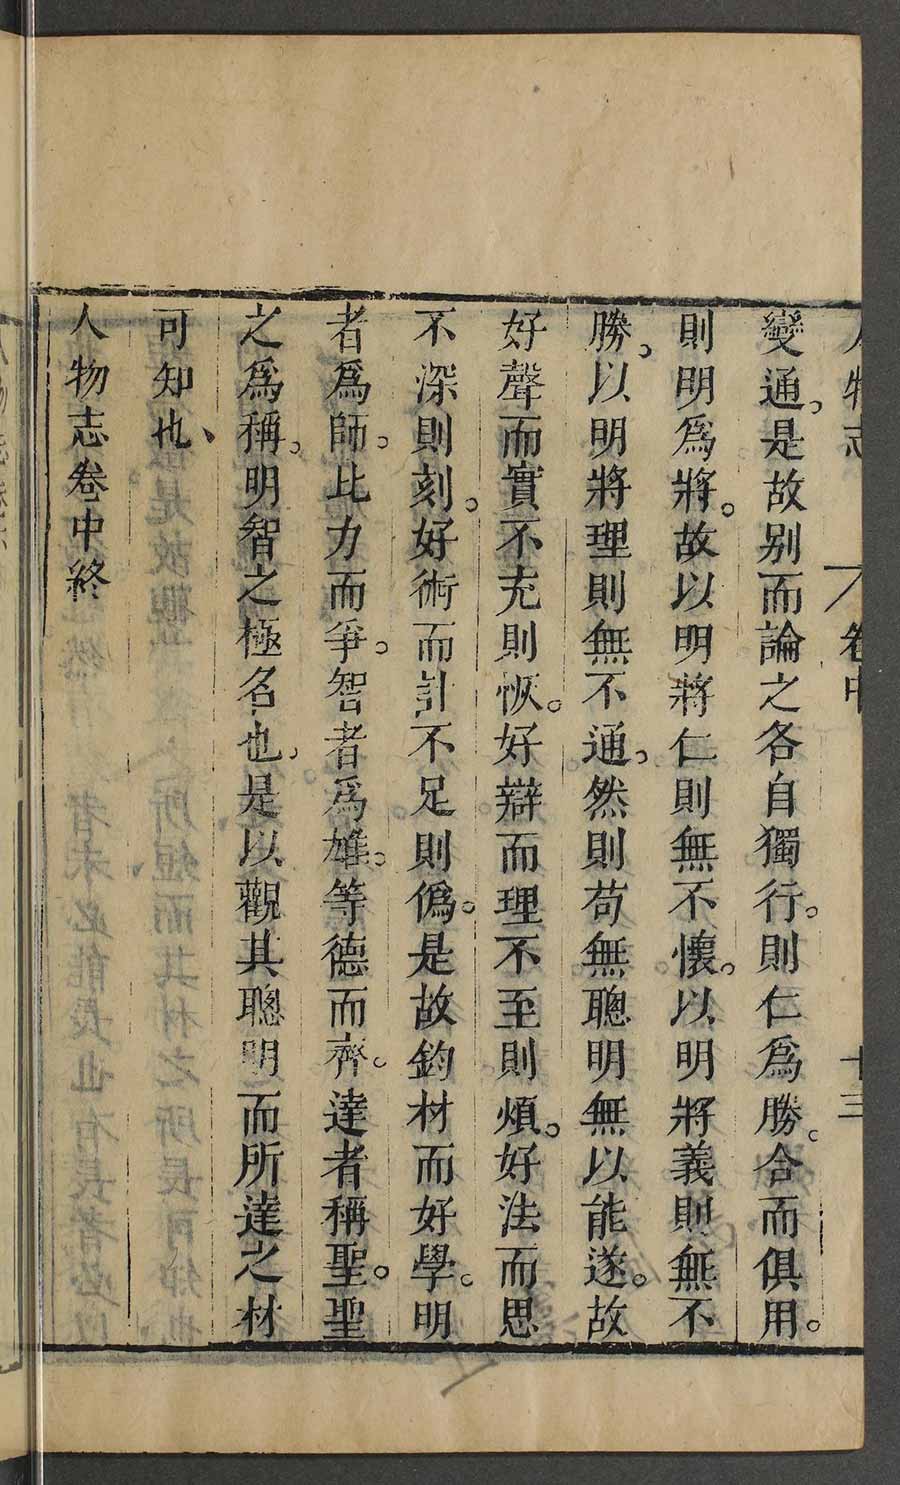 人物志 卷中 十三
變通。是故别而論之各自獨行。則仁爲勝。合而俱用。
則明爲將。故以明將仁則無不懷。以明將義則無不
勝。以明將理則無不通。然則苟無聰明無以能遂。故
好聲而實不充則恢。好辯而理不至則煩。好法而思
不深則刻。好術而計不足則僞。是故鈞材而好學。明
者爲師。比力而爭。智者爲雄。等德而齊。達者稱聖。聖
之爲稱。明智之極名也。是以觀其聰明而所達之材
可知也、
人物志卷中終